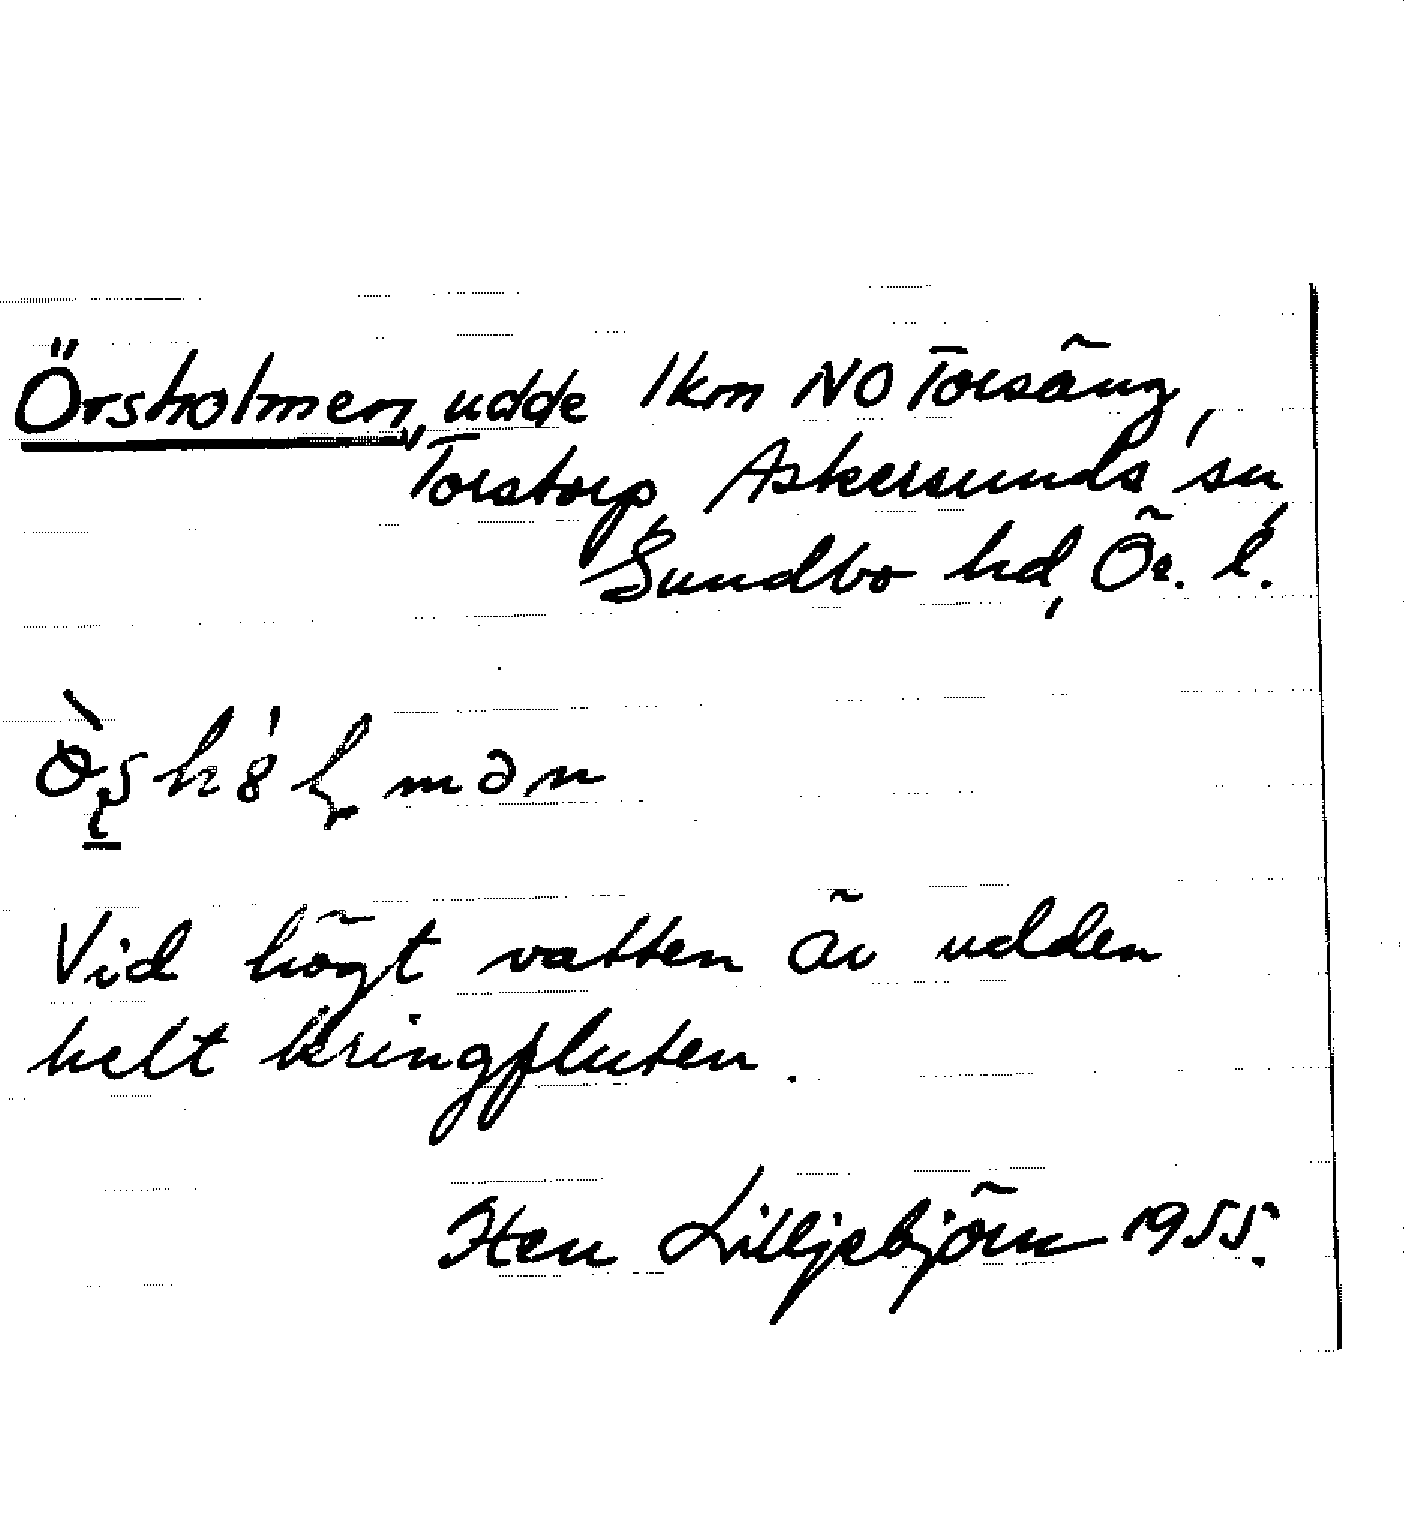 Örsholmen, udde 1 km NO Torsäng,
Torstorp, Askersunds sn,
Sundbo hd, Ör. l.
Vid högt vatten är udden
helt kringfluten.
Sten Lilljebjörn 1955.